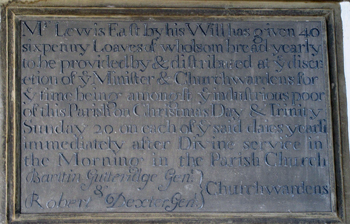 Mr. Lewis East by his Will has given 40
sixpenny Loaves of wholsom bread yearly
to be provided by & distributed at ye discr
etion of ye Minister & Churchwardens for
ye time being amongst ye industrious poor
of this Parish on Christmas Day & Trinity
Sunday 20 on each of ye said daies yearly
immediately after Divine service in
the Morning in the Parish Church
Gutteridge Gen.
& Churchwardens
Robert Dexter Gen.